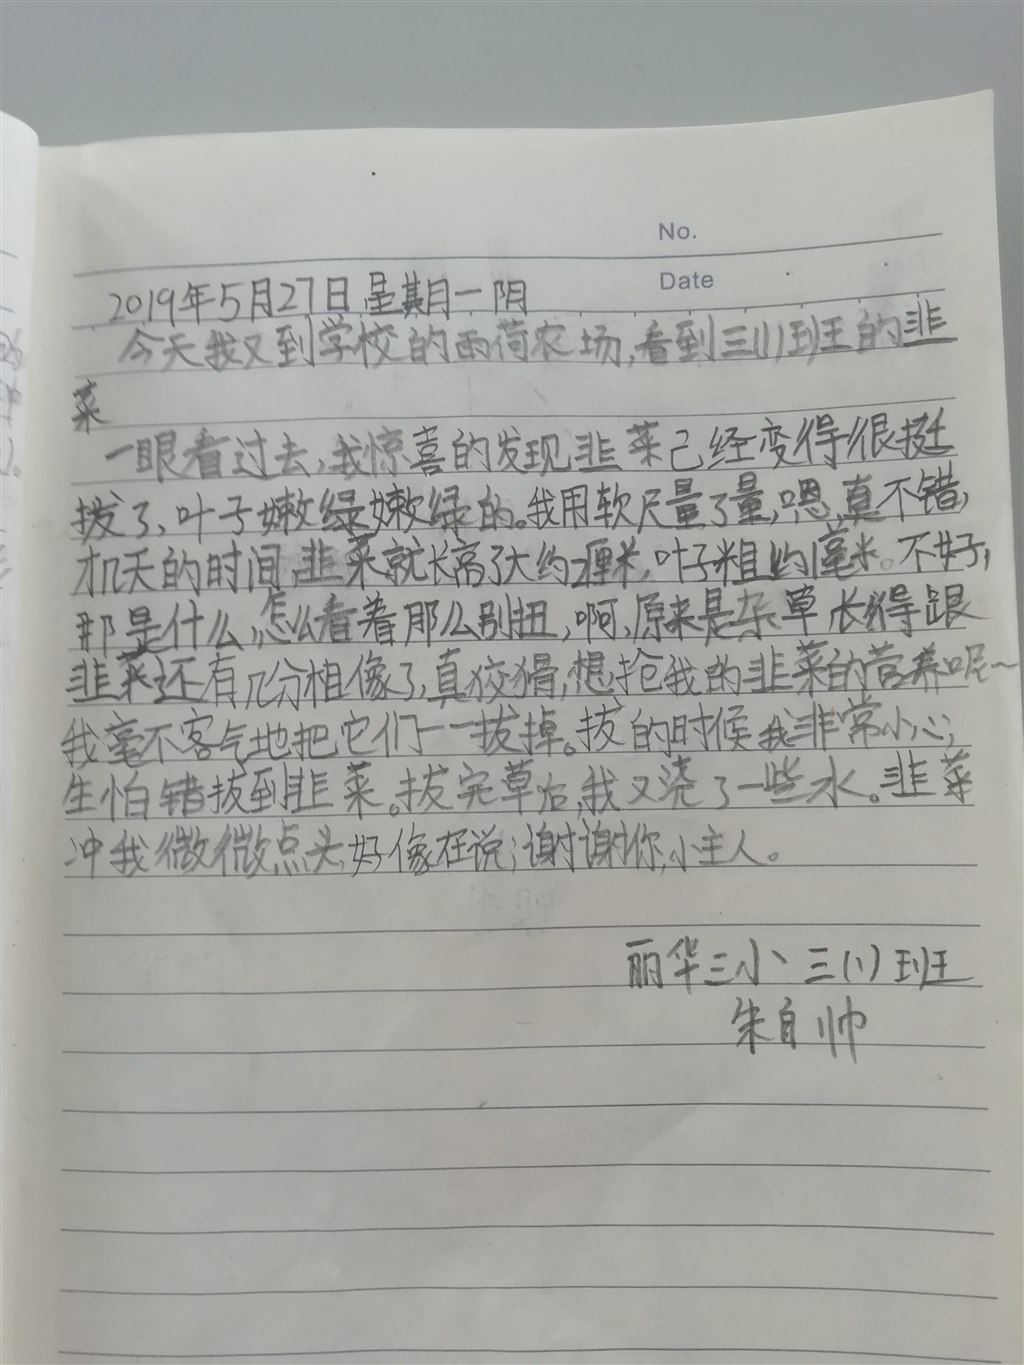 No.
Date
2019年5月27日,星期一阴
今天我又到学校的雨荷农场,看到三(1)班的韭
菜
一眼看过去,我惊喜的发现韭菜已经变得很挺
拔了,叶子嫩绿嫩绿的。我用软尺量了量,嗯,真不错,
才几天的时间,韭菜就长高了大约2厘米,叶子粗约1毫米。不好,
那是什么,怎么看着那么别扭,啊,原来是杂草长得跟
韭菜还有几分相像了,真狡猾,想抢我的韭菜的营养呢~
我毫不客气地把它们一一拔掉。拔的时候我非常小心,
生怕错拔到韭菜。拔完草后,我又浇了一些水。韭菜
冲我微微点头,好像在说:谢谢你,小主人。
丽华三小、三(1)班
朱自帅